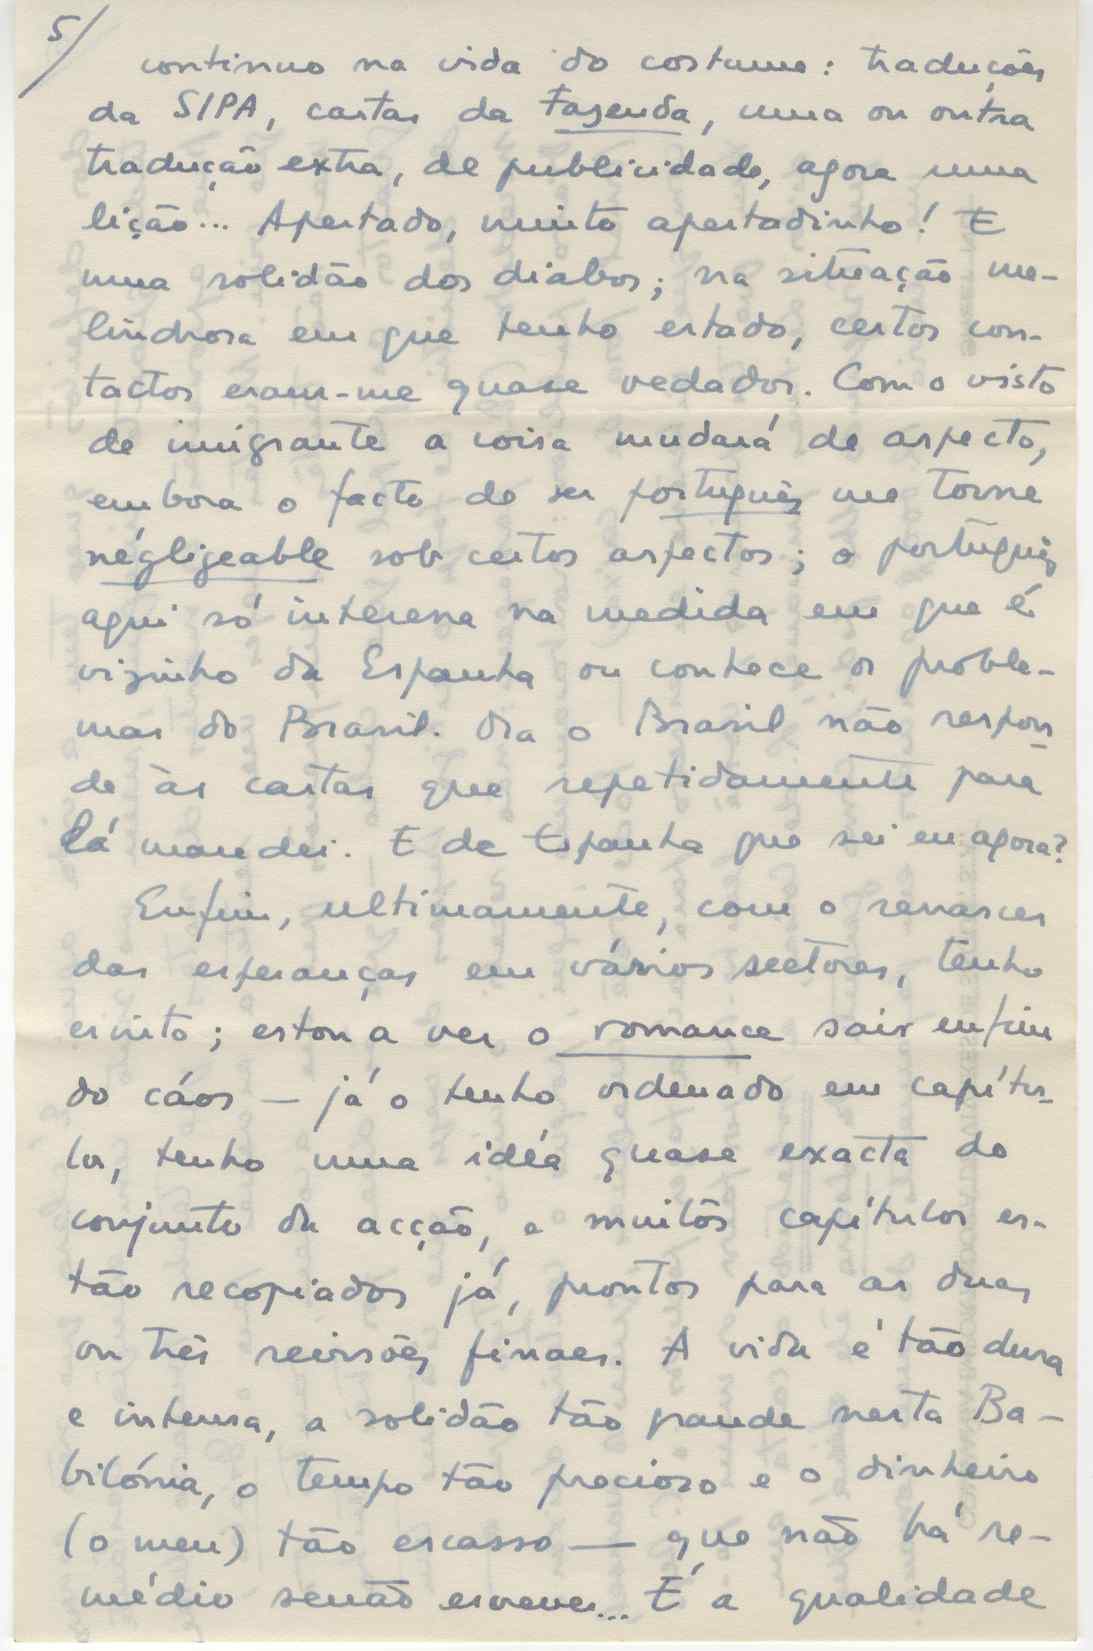 5/
continuo na vida do costume: traduções
da SIPA, cartas da Fazenda, uma ou outra
tradução extra, de publicidade, agora uma
lição... Apertado, muito apertadinho! E
uma solidão dos diabos; na situação me-
lindrosa em que tenho estado, certos con-
tactos eram-me quase vedados. Com o visto
de imigrante a coisa mudará de aspecto,
embora o facto de ser português me torne
négligeable sob certos aspectos; o português
aqui só interessa na medida em que é
vizinho da Espanha ou conhece os proble-
mas do Brasil. Ora o Brasil não respon-
de às cartas que repetidamente para
lá mandei. E de Espanha que sei eu agora?
Enfim, ultimamente, com o renascer
das esperanças em vários sectores, tenho
escrito; estou a ver o romance sair enfim
do cáos — já o tenho ordenado em capítu-
los, tenho uma idéa quase exacta do
conjunto da acção, e muitos capítulos es-
tão recopiados já, prontos para as duas
ou três revisões finaes. A vida é tão dura
e intensa, a solidão tão grande nesta Ba-
bilónia, o tempo tão precioso e o dinheiro
(o meu) tão escasso — que não há re-
médio senão escrever... É a qualidade